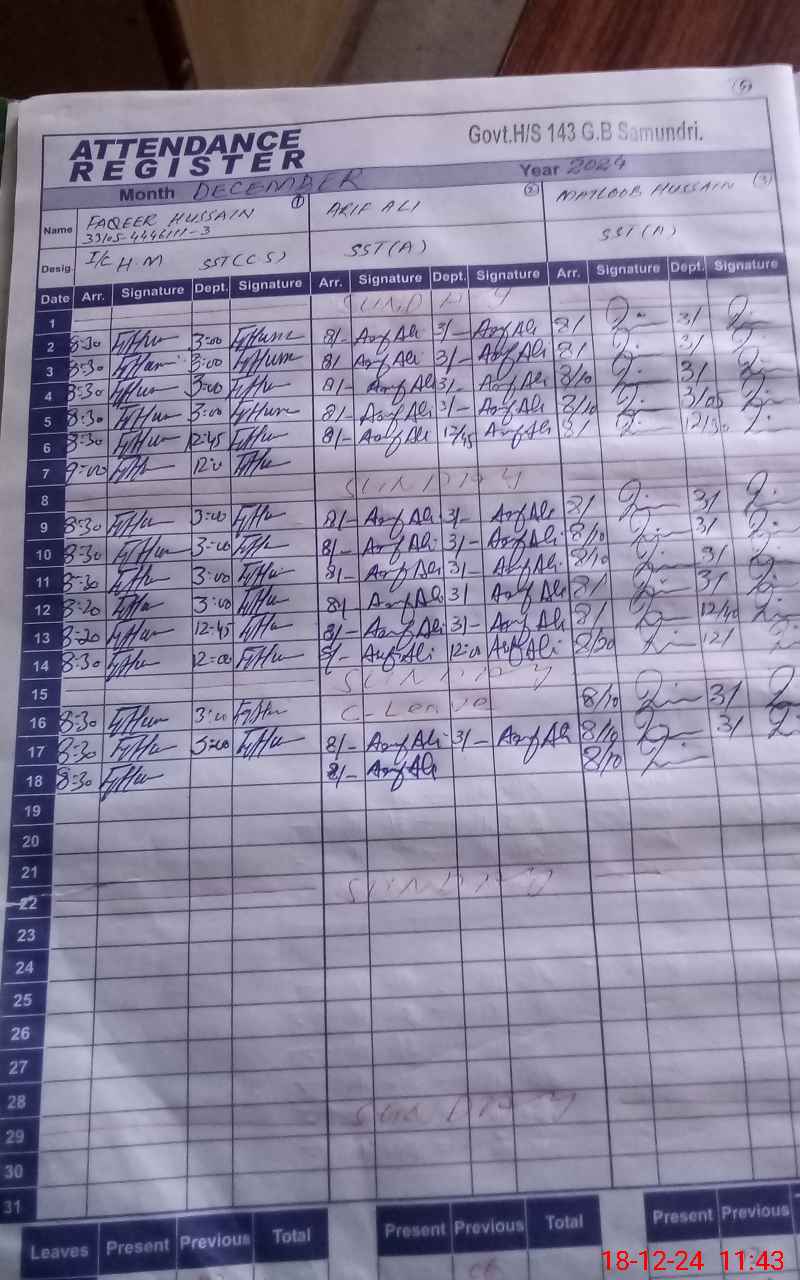 (5)
ATTENDANCE REGISTER Govt.H/S 143 G.B Samundri.
Month DECEMBER Year 2024
Name FAQEER HUSSAIN (1) ARIF ALI (2) MATLOOB HUSSAIN (3)
33105-4446111-3
Desig. I/C H.M SST(C.S) SST(A) SST(A)
Date Arr. Signature Dept. Signature Arr. Signature Dept. Signature Arr. Signature Dept. Signature
1 SUNDAY
2 8:30 3:00 8/- Arif Ali 3/- Arif Ali 8/ 3/
3 8:30 3:00 8/ Arif Ali 3/- Arif Ali 8/ 3/
4 8:30 3:00 8/- Arif Ali 3/- Arif Ali 8/10 3/
5 8:30 3:00 8/- Arif Ali 3/- Arif Ali 8/10 3/00
6 8:30 12:45 8/- Arif Ali 12/45 Arif Ali 8/ 12/30
7 9:00 12:0
8 SUNDAY
9 8:30 3:00 8/- Arif Ali 3/- Arif Ali 8/ 3/
10 8:30 3:00 8/- Arif Ali 3/- Arif Ali 8/10 3/
11 8:30 3:00 8/- Arif Ali 3/- Arif Ali 8/10 3/
12 8:20 3:00 8/ Arif Ali 3/ Arif Ali 8/ 3/
13 8:20 12:45 8/- Arif Ali 3/- Arif Ali 8/ 12/40
14 8:30 12:00 8/- Arif Ali 12:00 Arif Ali 8/30 12/
15 SUNDAY
16 8:30 3:00 C-Leave 8/10 3/
17 8:30 3:00 8/- Arif Ali 3/- Arif Ali 8/10 3/
18 8:30 8/- Arif Ali 8/10
19
20
21
22 SUNDAY
23
24
25
26
27
28
29 SUNDAY
30
31
Leaves Present Previous Total Present Previous Total Present Previous
18-12-24 11:43